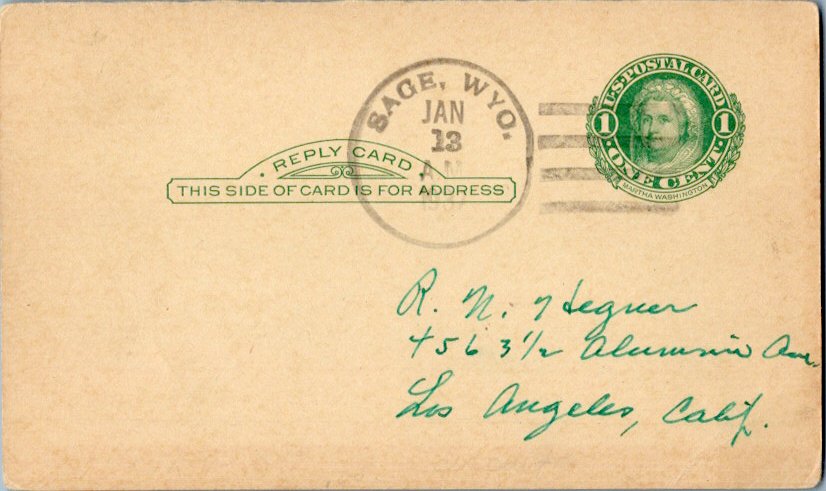 SAGE, WYO.
JAN
13
A.M.
1937
U.S. POSTAL CARD
1 1
ONE CENT
MARTHA WASHINGTON
· REPLY CARD ·
THIS SIDE OF CARD IS FOR ADDRESS
R. N. Hegner
4563½ Alumnia Ave.
Los Angeles, Calif.